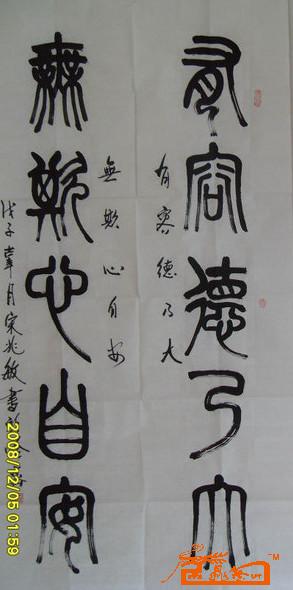 有容德乃大
有容德乃大
無欺心自安
無欺心自安
戊子辜月宋兆敏書
2008/12/05 01:59